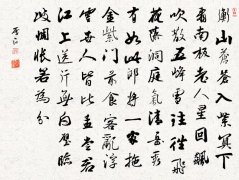 衡山蒼蒼入紫冥下
看南極老人星回飆
吹散五峰雪往往飛
花落洞庭氣清岳秀
有如此郎將一家拖
金紫門前食客亂浮
雲世人皆比孟嘗君
江上送行無白璧臨
歧惆悵若為分